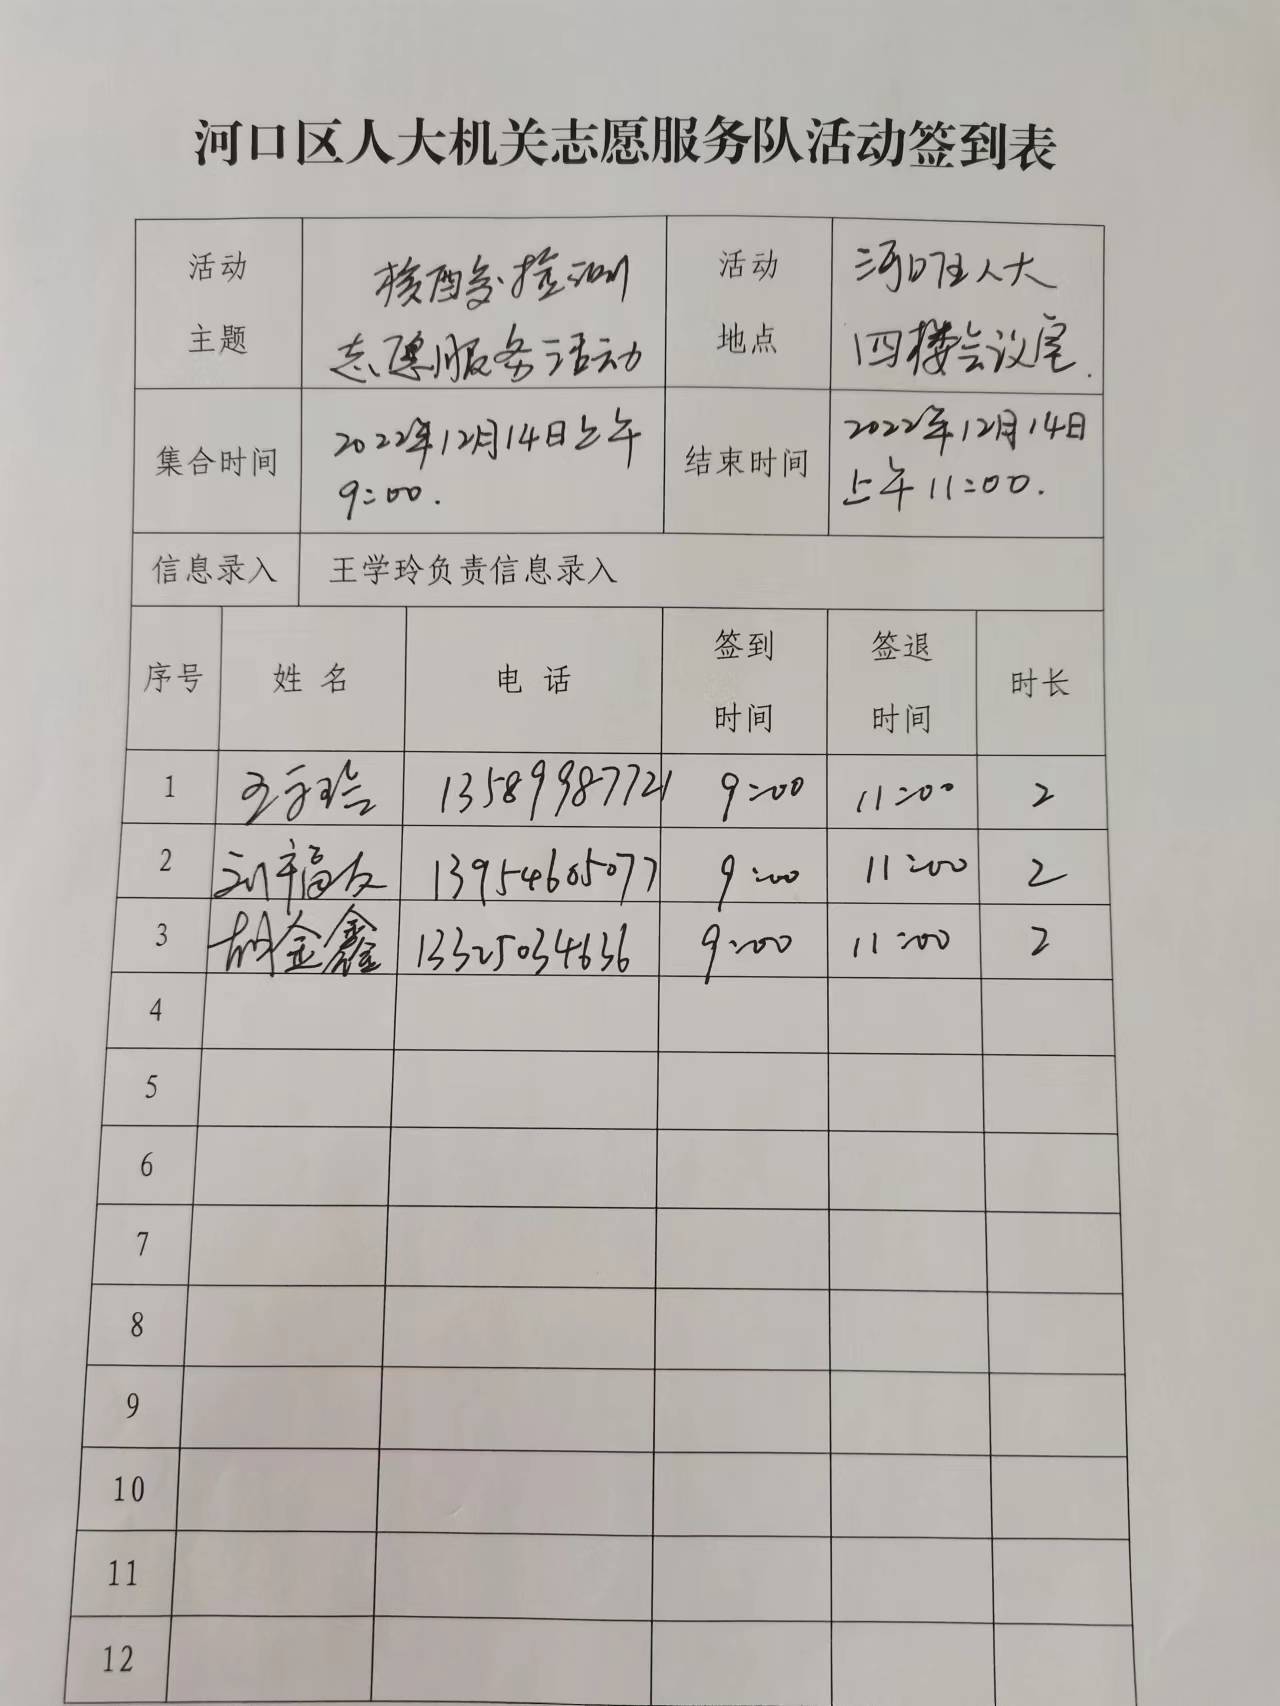 河口区人大机关志愿服务队活动签到表
活动
主题
核酸检测
志愿服务活动
活动
地点
河口区人大
四楼会议室.
集合时间
2022年12月14日上午
9:00.
结束时间
2022年12月14日
上午11:00.
信息录入 王学玲负责信息录入
序号 姓名 电话 签到时间 签退时间 时长
1 王学玲 13589987721 9:00 11:00 2
2 刘福友 13954605077 9:00 11:00 2
3 胡金鑫 13325034636 9:00 11:00 2
4
5
6
7
8
9
10
11
12